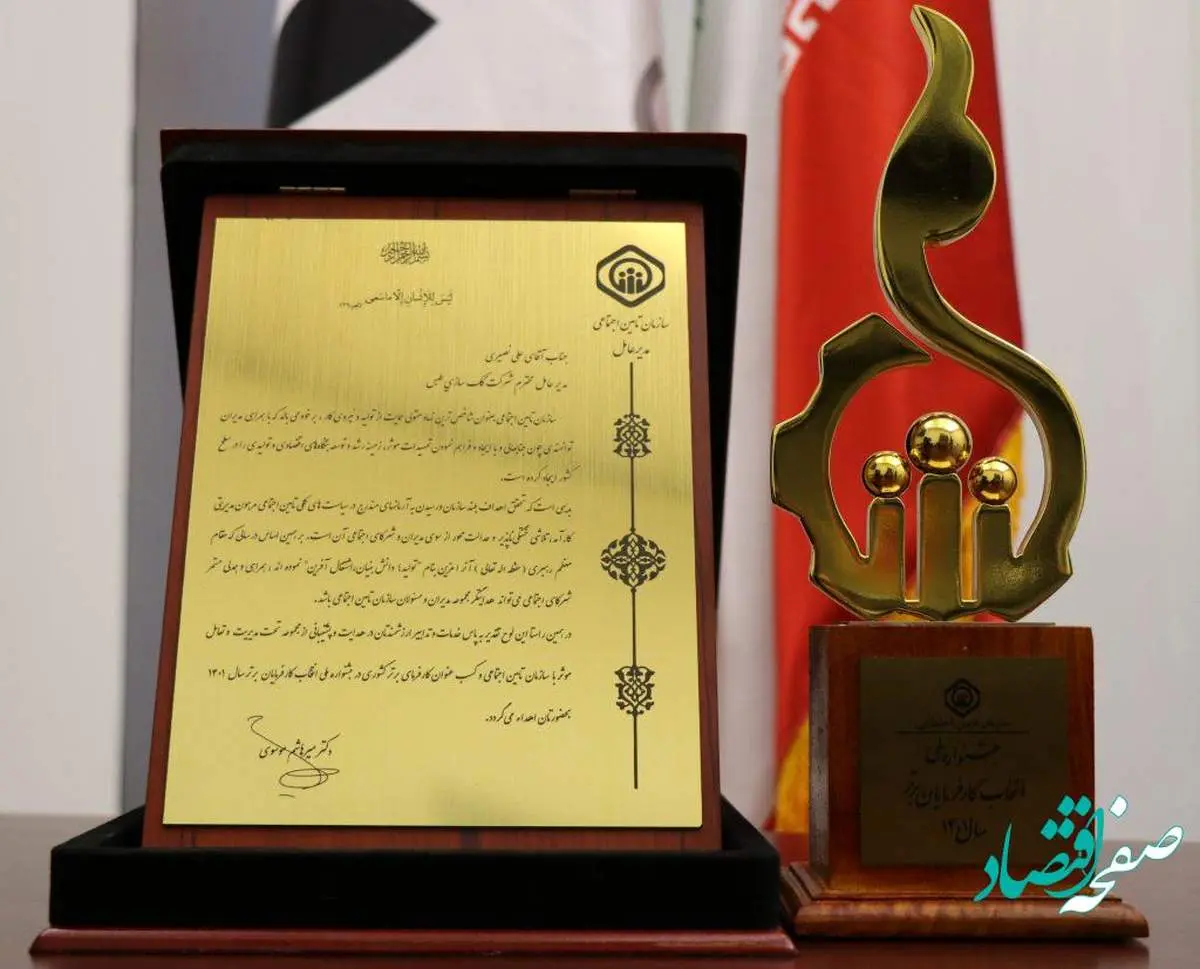 بسم الله الرحمن الرحیم
لَیْسَ لِلْإِنْسانِ إِلّا ما سَعى
سازمان تامین اجتماعی
مدیرعامل
جناب آقای علی نصیری
مدیر عامل محترم شرکت کک سازی طبس
سازمان تامین اجتماعی بعنوان شاخص ترین نهاد متولی حمایت از تولید و نیروی کار ، بر خود می بالد که با همراهی مدیران
توانمندی چون جنابعالی و با ایجاد و فراهم نمودن تمهیدات موثر، زمینه رشد و توسعه بنگاههای اقتصادی و تولیدی را در سطح
کشور ایجاد کرده است.
بدیهی است که تحقق اهداف بلند سازمان در رسیدن به آرمانهای مندرج در سیاست های کلی تامین اجتماعی مرهون مدیریتی
کارآمد، تلاشی خستگی ناپذیر و عدالت محور از سوی مدیران و شرکای اجتماعی آن است. بر همین اساس در سالی که مقام
معظم رهبری (حفظه اله تعالی) آنرا مزین بنام "تولید؛ دانش بنیان، اشتغال آفرین" نموده اند ، همراهی و همدلی مستمر
شرکای اجتماعی می تواند هدایتگر مجموعه مدیران و مسئولان سازمان تامین اجتماعی باشد.
در همین راستا این لوح تقدیر به پاس خدمات و تدابیر ارزشمندتان در هدایت و پشتیبانی از مجموعه تحت مدیریت و تعامل
موثر با سازمان تامین اجتماعی و کسب عنوان کارفرمای برتر کشوری در جشنواره ملی انتخاب کارفرمایان برتر سال ۱۴۰۱
بحضورتان اهداء می گردد.
دکتر میرهاشم موسوی
سازمان تامین اجتماعی
جشنواره ملی
انتخاب کارفرمایان برتر
سال ۱۴۰۱
صفحه اقتصاد